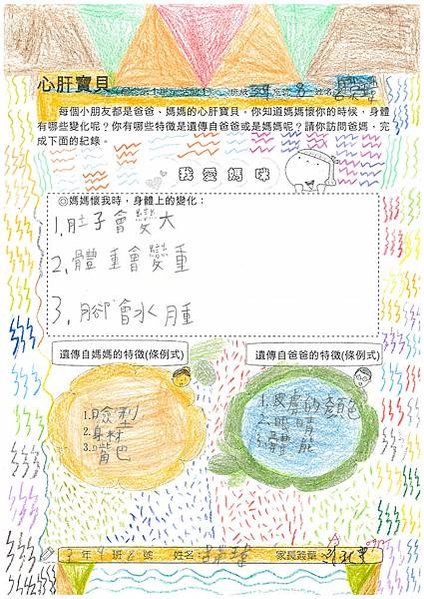 心肝寶貝
每個小朋友都是爸爸、媽媽的心肝寶貝。你知道媽媽懷你的時候，身體
有哪些變化呢？你有哪些特徵是遺傳自爸爸或是媽媽呢？請你訪問爸媽，完
成下面的紀錄。
我愛媽咪
◎媽媽懷我時，身體上的變化：
1.肚子會變大
2.體重會變重
3.腳會水腫
遺傳自媽媽的特徵(條例式)
遺傳自爸爸的特徵(條例式)
1.臉型
2.身材
3.嘴巴
1.皮膚的顏色
2.眼睛
3.體能
年 班 號 姓名： 家長簽章